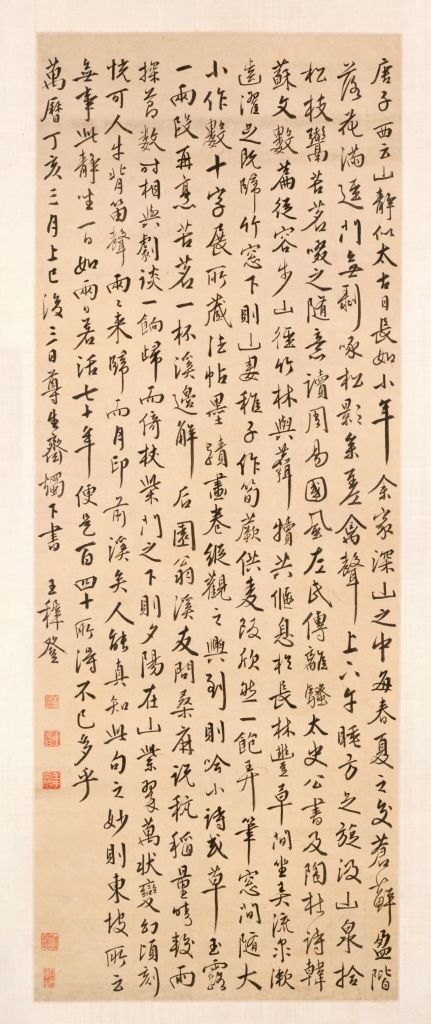 唐子西云山靜似太古日長如小年余家深山之中每春夏之交蒼蘚盈階
落花滿逕門無剝啄松影參差禽聲上下午睡方足旋汲山泉拾
松枝鬻苦茗啜之隨意讀周易國風左氏傳離騷太史公書及陶杜詩韓
蘇文數篇從容步山徑竹林與麛犢共偃息於長林豐草間坐弄流泉漱
齒濯足既歸竹窗下則山妻稚子作筍蕨供麥飯欣然一飽弄筆窗間隨大
小作數十字展所藏法帖墨蹟畫卷縱觀之興到則吟小詩或草玉露
一兩段再烹苦茗一杯溪邊解后園翁溪友問桑麻說秔稻量晴較雨
探節數時相與劇談一餉歸而倚杖柴門之下則夕陽在山紫翠萬狀變幻頃刻
恍可人牛背笛聲兩兩來歸而月印前溪矣人能真知此句之妙則東坡所云
無事此靜坐一日如兩日若活七十年便是百四十所得不已多乎
萬曆丁亥三月上巳後三日尊生齋燭下書 王穉登